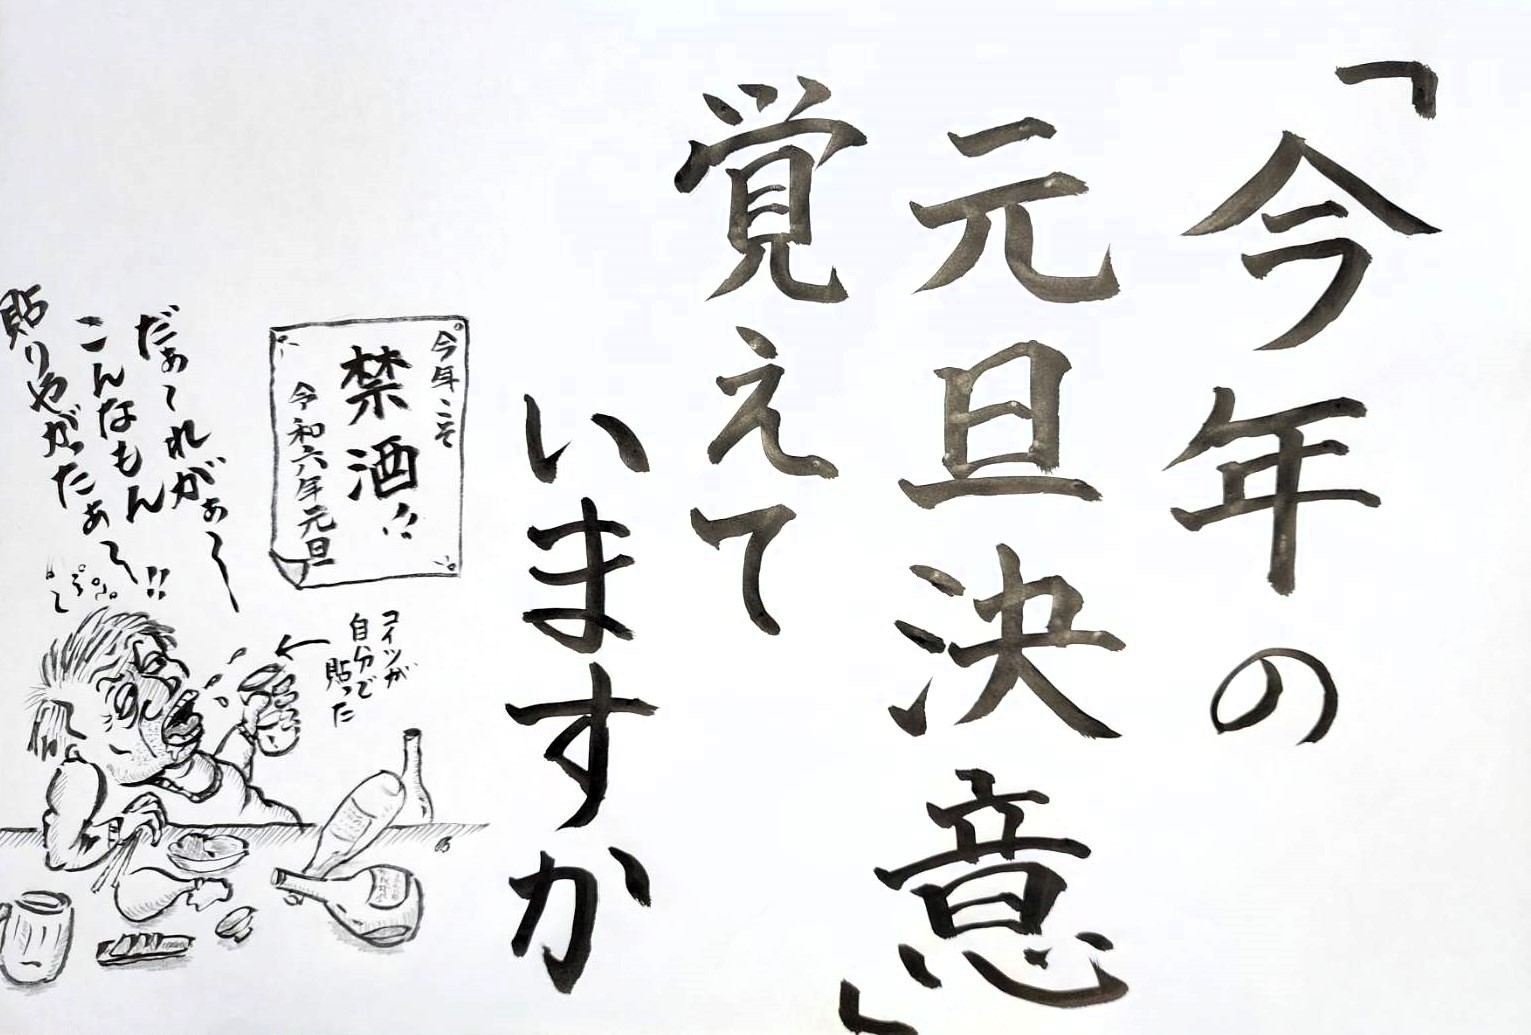 「今年の
元旦決意」
覚えて
いますか
今年こそ
禁酒!!
令和六年元旦
コイツが
自分で
貼った
だぁ〜れがぁ〜
こんなもん
貼りやがったぁ〜!!